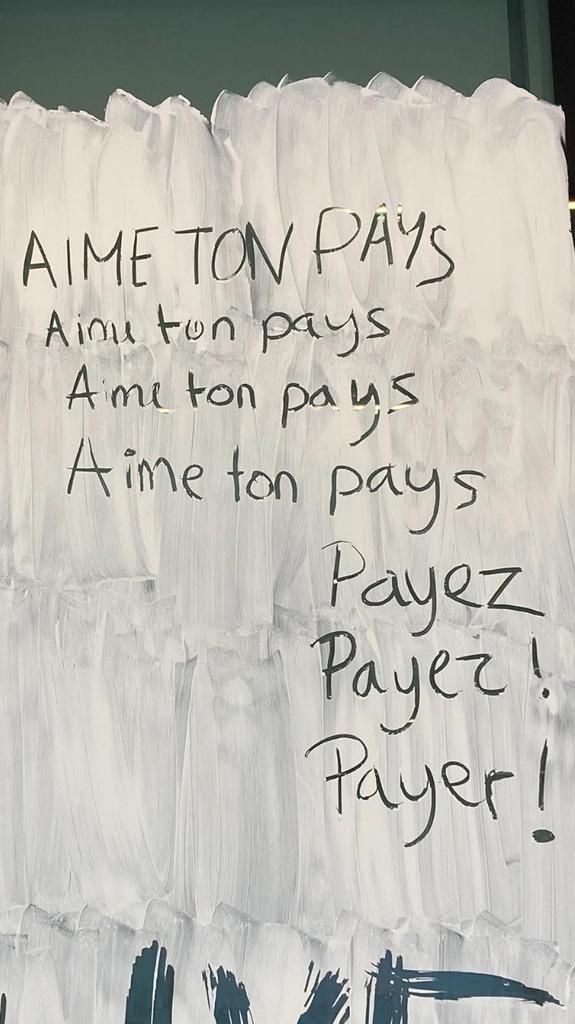 AIME TON PAYS
Aime ton pays
Aime ton pays
Aime ton pays
Payez
Payez !
Payer !